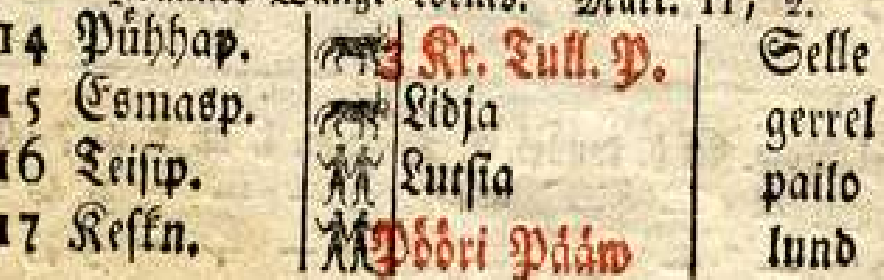 Matt. 11, 2.
14 Pühhap. 3 Kr. Tull. P. Selle
15 Esmasp. Lidja gerrel
16 Teisip. Lutsia pailo
17 Keskn. Pööri Pääw lund